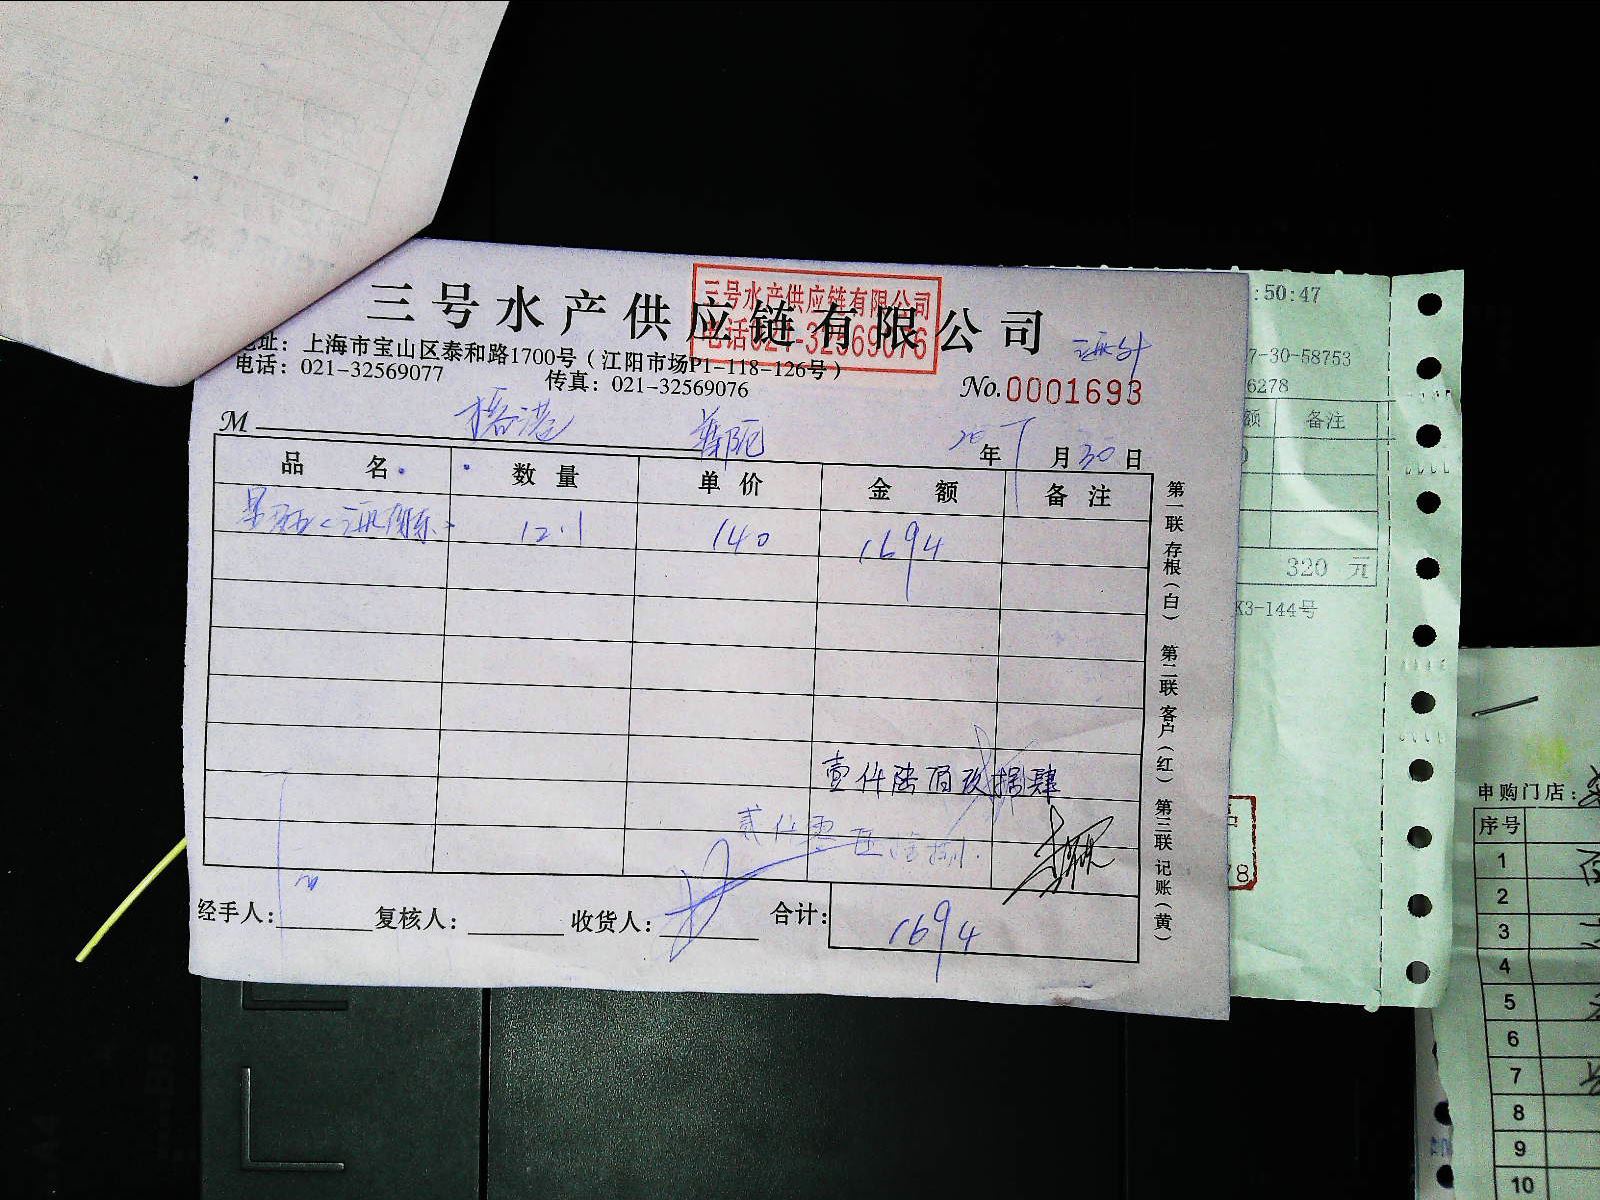 三号水产供应链有限公司
三号水产供应链有限公司
电话021-32569076
地址：上海市宝山区泰和路1700号（江阳市场P1-118-126号）
电话：021-32569077 传真：021-32569076
No.0001693
M
年 月 30 日
品名 数量 单价 金额 备注
12.1 140 1694
壹仟陆佰玖拾肆
经手人： 复核人： 收货人： 合计： 1694
第一联 存根（白） 第二联 客户（红） 第三联 记账（黄）
:50:47
7-30-58753
6278
额 备注
320 元
K3-144号
申购门店：
序号
1
2
3
4
5
6
7
8
9
10